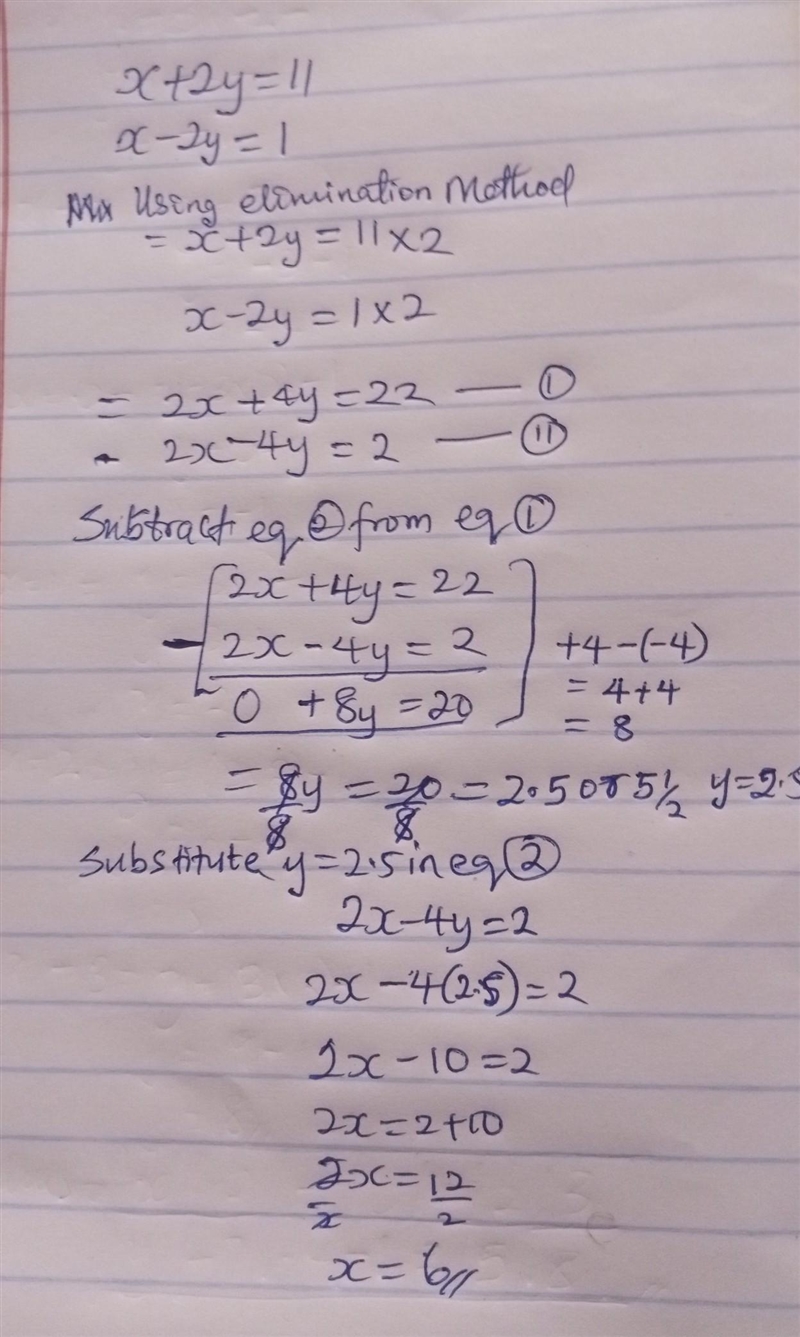 x+2y=11
x-2y=1
Using elimination Method
= x+2y=11×2
x-2y=1×2
= 2x+4y=22 — ①
- 2x-4y=2 — ⑪
Subtract eq ② from eq ①
2x+4y=22
- 2x-4y=2 +4-(-4)
0 +8y=20 = 4+4
= 8
= 8y/8 = 20/8 = 2.5 or 5½ y=2.5
Substitute y=2.5 in eq ②
2x-4y=2
2x-4(2.5)=2
2x-10=2
2x=2+10
2x/2=12/2
x=6//